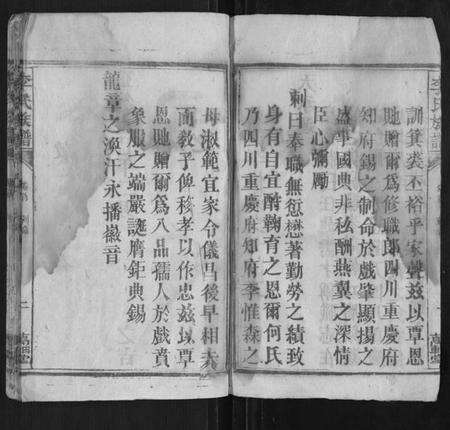 訓箕裘丕裕乎家聲茲以覃恩
貤贈爾為修職郎四川重慶府
知府錫之制命於戲肇顯揚之
盛事國典非私酬燕翼之深情
臣心彌勵
制曰奉職無愆懋著勤勞之績致
身有自宜酬鞠育之恩爾何氏
乃四川重慶府知府李惟森之
母淑範宜家令儀昌後早相夫
而教子俾移孝以作忠茲以覃
恩貤贈爾為八品孺人於戲賁
象服之端嚴誕膺鉅典錫
龍章之渙汗永播徽音
李氏族譜